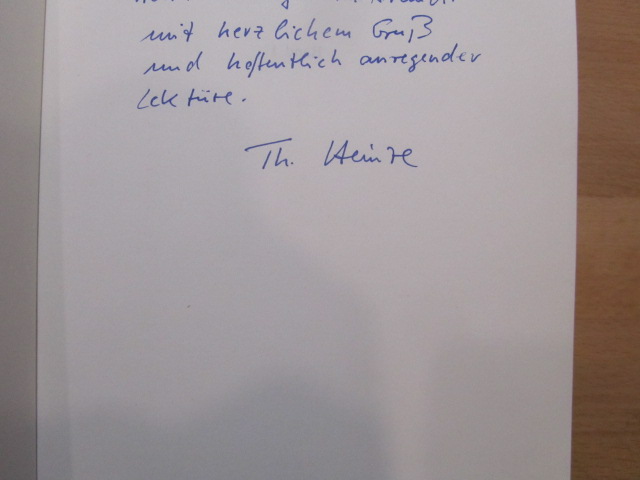 mit herzlichem Gruß
und hoffentlich anregender
Lektüre.
Th. Heinze